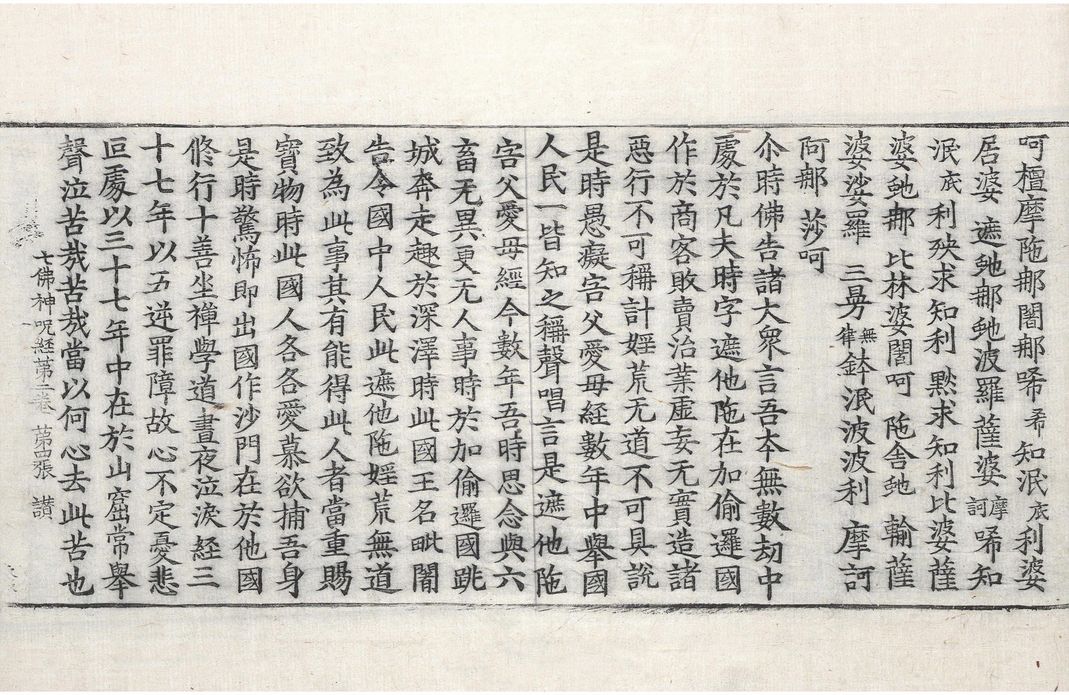 呵檀摩陁郍闍郍唏希知泯㡳利婆
居婆 遮虵郍虵波羅薩婆摩訶唏知
泯㡳利殃求知利 㸃求知利比婆薩
婆虵郍 比林婆闍呵 陁舎虵 輸薩
婆娑羅 三㝵無律鉢泯波波利 摩訶
阿郍 莎呵
尒時佛告諸大衆言吾本無數劫中
處於凡夫時字遮他陁在加偷邏國
作於商客敗賣治業虛妄无實造諸
惡行不可稱計婬荒无道不可具說
是時愚癡害父愛母經數年中舉國
人民一皆知之稱聲唱言是遮他陁
害父愛母經今數年吾時思念與六
畜无異更无人事時於加偷邏國跳
城奔走趣於深澤時此國王名毗闍
告令國中人民此遮他陁婬荒無道
致為此事其有能得此人者當重賜
寳物時此國人各各愛慕欲捕吾身
是時驚怖即出國作沙門在於他國
修行十善坐禪學道晝夜泣淚経三
十七年以五逆罪障故心不定憂悲
叵處以三十七年中在於山窟常舉
聲泣苦㢤苦㢤當以何心去此苦也
七佛神呪経第二卷 第四張 讃